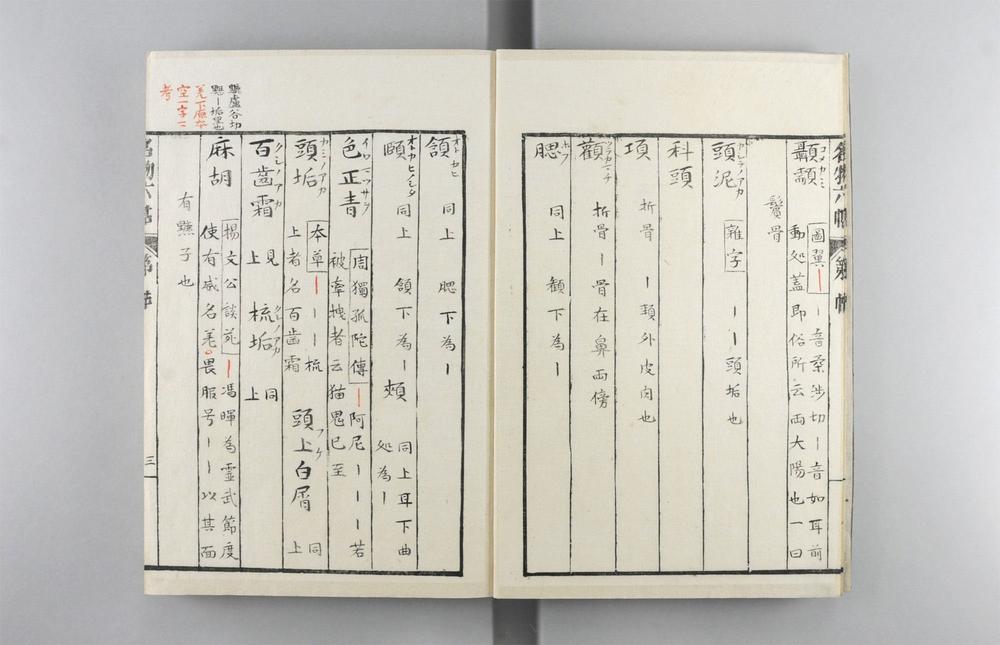 名物六帖 第 帖
顳顬 コメカミ 圖翼 ー音桑渉切ー音如耳前
動処蓋即俗所云両大陽也一曰
鬢骨
頭泥 カシラノアカ 雜字 ーー頭垢也
科頭
項 折骨 ー頚外皮肉也
顴 ツラカマチ 折骨ー骨在鼻両傍
腮 ホフ 同上 顴下為ー
頷 オトカヒ 同上 腮下為ー
頤 オトカヒノシタ 同上 頷下為ー 頰 同上耳下曲
処為ー
色正青 イロマツサヲ 周獨孤陀傳 阿尼ーーー若
被牽拽者云猫鬼已至
頭垢 カミノアカ 本草 ーー梳
上者名百齒霜 頭上白屑 フケ 同上
百齒霜 クシノアカ 見上 梳垢 クシノアカ 同上
麻胡 楊文公談苑 馮暉為霊武節度
使有威名羌。畏服号ーー以其面
有 子也
盧谷切
ー垢黒也
羌下庵本
空一字ニ
考
名物六帖 第 帖 三